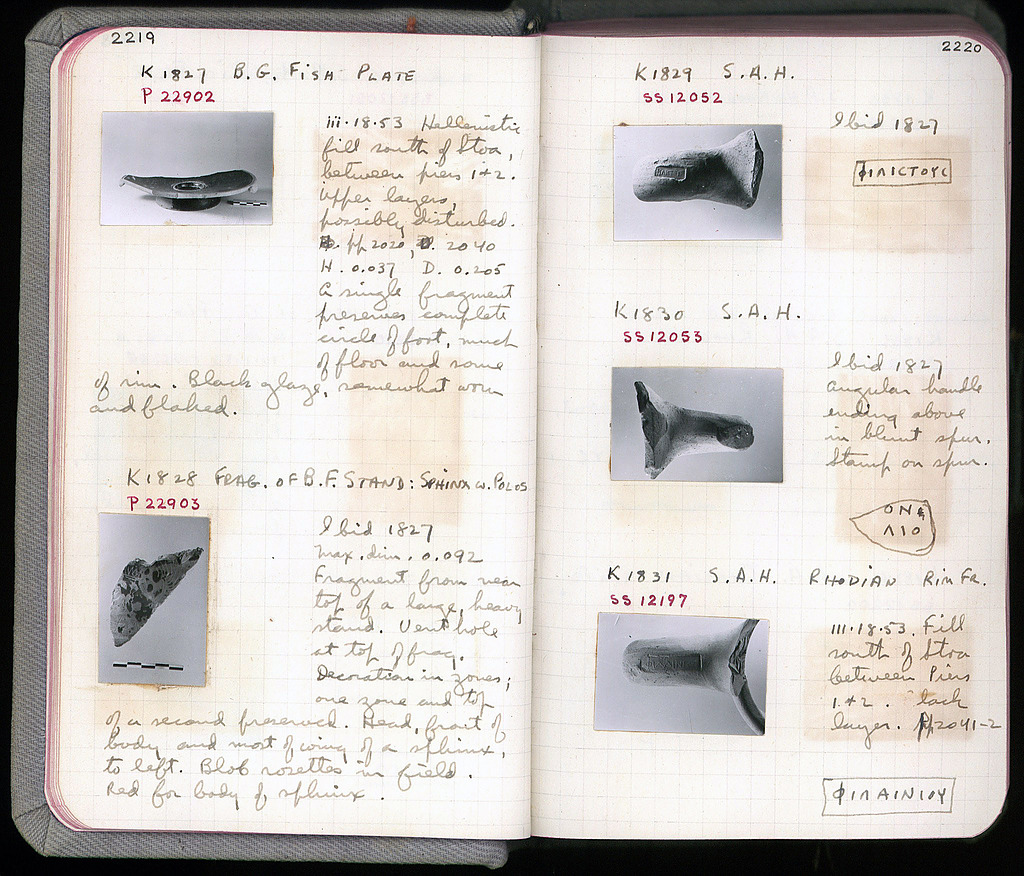 2219
K 1827 B.G. FISH PLATE
P 22902
iii·18·53 Hellenistic
fill south of Stoa,
between piers 1+2.
Upper layers,
possibly disturbed.
pp 2020, 2040
H. 0.037 D. 0.205
A single fragment
preserves complete
circle of foot, much
of floor and some
of rim. Black glaze, somewhat worn
and flaked.
K 1828 FRAG. OF B.F. STAND: SPHINX W. POLOS
P 22903
Ibid 1827
Max. dim. 0.092
Fragment from near
top of a large, heavy
stand. Vent hole
at top of frag.
Decoration in zones;
one zone and top
of a second preserved. Head, front of
body and most of wing of a sphinx,
to left. Blob rosettes in field.
Red for body of sphinx.
2220
K 1829 S.A.H.
SS 12052
Ibid 1827
ΦΙΛΙCΤΟΥC
K 1830 S.A.H.
SS 12053
Ibid 1827
Angular handle
ending above
in blunt spur.
Stamp on spur.
ΟΝΑ
ΛΙΟ
K 1831 S.A.H. RHODIAN RIM FR.
SS 12197
III·18·53. Fill
south of Stoa
between Piers
1+2. layer. pp 2041-2
ΦΙΛΑΙΝΙΟΥ